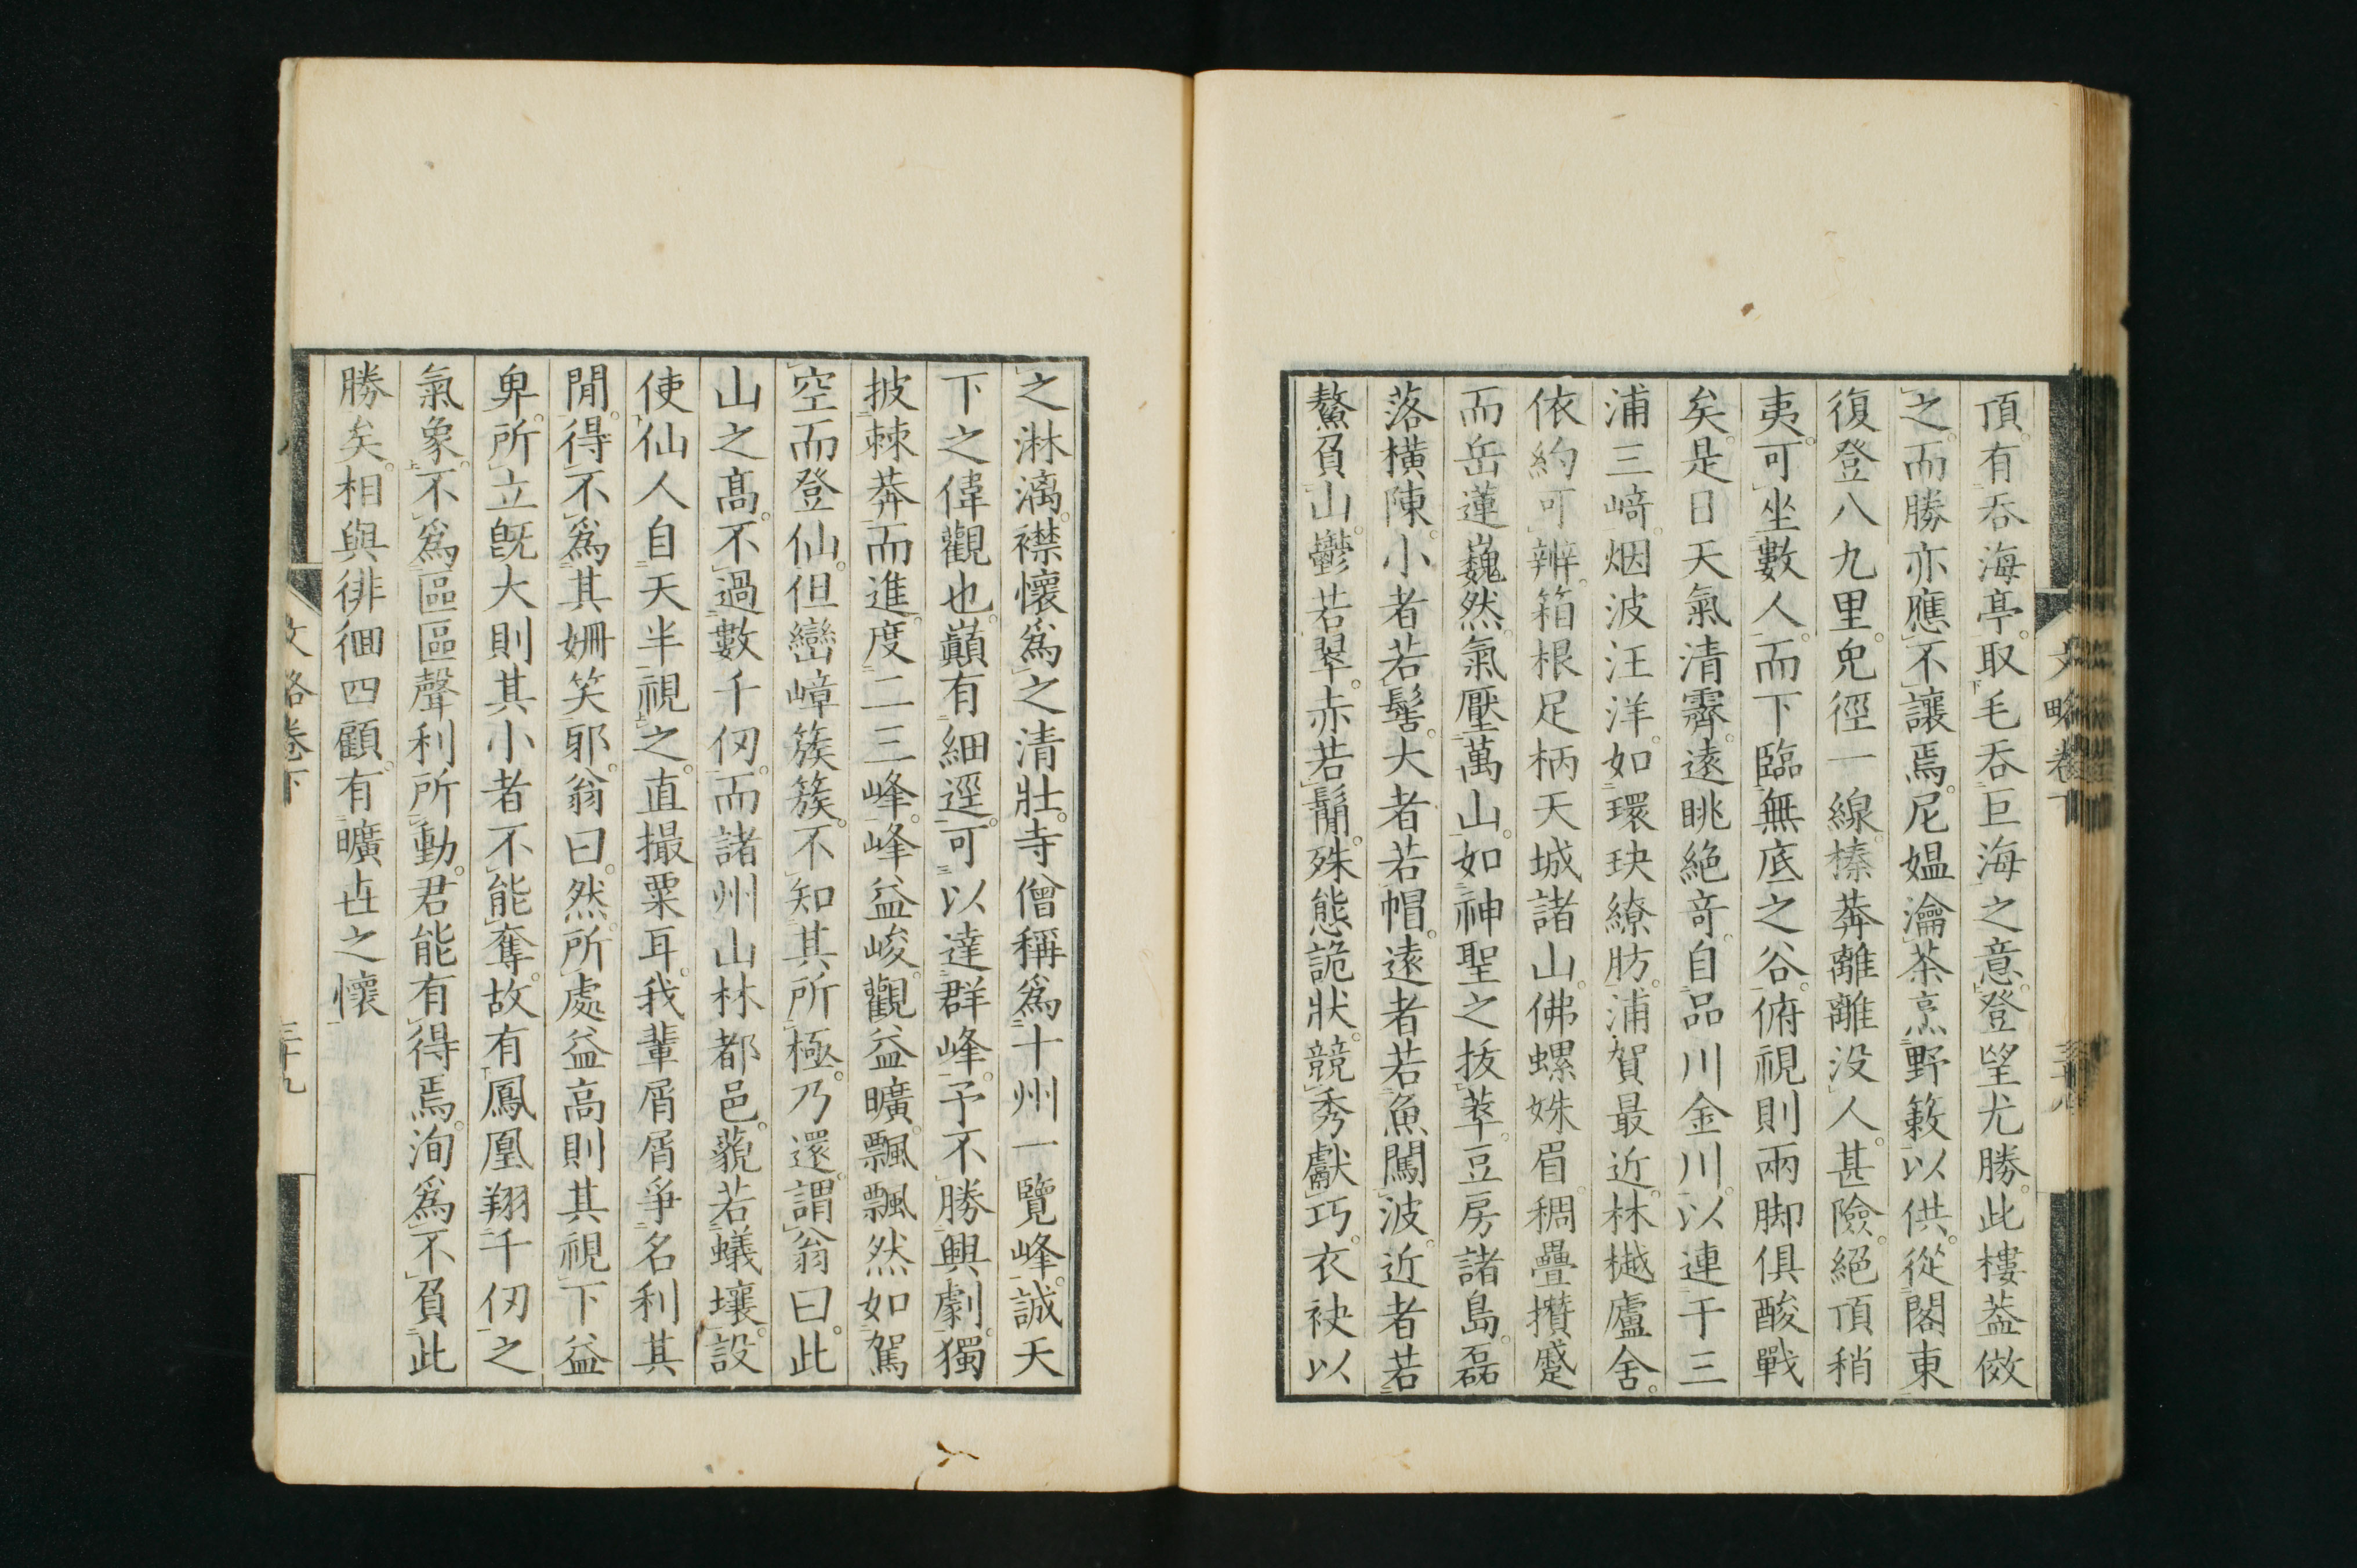 頂。有吞海亭。取毛吞巨海之意。登望尤勝。此樓葢倣
之。而勝亦應不讓焉。尼媼瀹茶烹野蔌以供。從閣東
復登八九里。皃徑一線。榛莽離離没人。甚險。絕頂稍
夷。可坐數人。而下臨無底之谷。俯視則兩脚俱酸戰
矣。是日天氣清霽。遠眺絕竒。自品川金川。以連于三
浦三﨑。烟波汪洋。如環玦繚肪。浦賀最近。林樾廬舍。
依約可辨。箱根足柄天城諸山。佛螺姝眉。稠疊攢蹙
而岳蓮巍然。氣壓萬山。如神聖之拔萃。豆房諸島。磊
落橫陳。小者若髻。大者若帽。遠者若魚闖波。近者若
鰲負山。鬱若翠。赤若鬜。殊態詭狀。競秀獻巧。衣袂以
之淋漓。襟懷爲之清壯。寺僧稱爲十州一覽峰。誠天
下之偉觀也。巔有細逕。可以達群峰。予不勝興劇。獨
披棘莽而進。度二三峰。峰益峻。觀益曠。飄飄然如駕
空而登仙。但巒嶂簇簇。不知其所極。乃還。謂翁曰。此
山之髙。不過數千仞。而諸州山林都邑。藐若蟻壤。設
使仙人自天半視之。直撮粟耳。我輩屑屑爭名利其
閒。得不爲其姍笑耶。翁曰。然。所處益高則其視下益
卑。所立旣大則其小者不能奪。故有鳳凰翔千仞之
氣象。不爲區區聲利所動。君能有得焉。洵爲不負此
勝矣。相與徘徊四顧。有曠世之懷
文略卷下
三十九